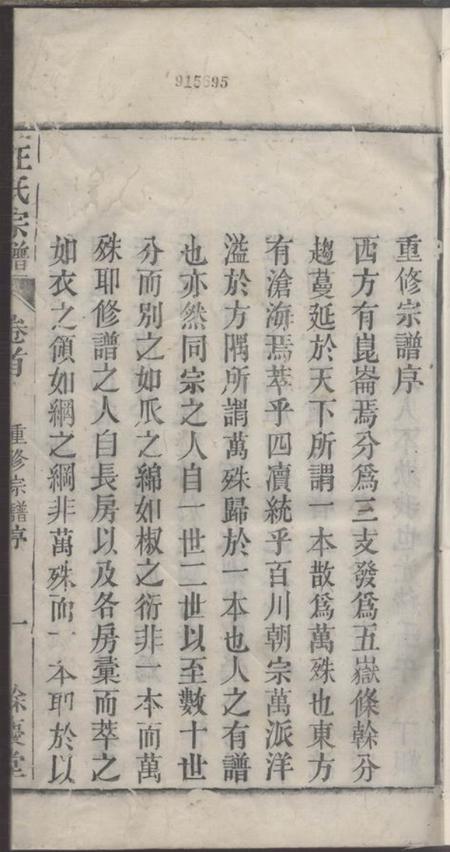 915695
重修宗譜序
西方有崑崙焉分爲三支發爲五嶽條榦分
趨蔓延於天下所謂一本散爲萬殊也東方
有滄海焉萃乎四瀆統乎百川朝宗萬派洋
溢於方隅所謂萬殊歸於一本也人之有譜
也亦然同宗之人自一世二世以至數十世
分而別之如瓜之綿如椒之衍非一本而萬
殊耶修譜之人自長房以及各房彙而萃之
如衣之領如網之綱非萬殊而一本耶於以
氏宗譜 卷首 重修宗譜序 一 餘慶堂